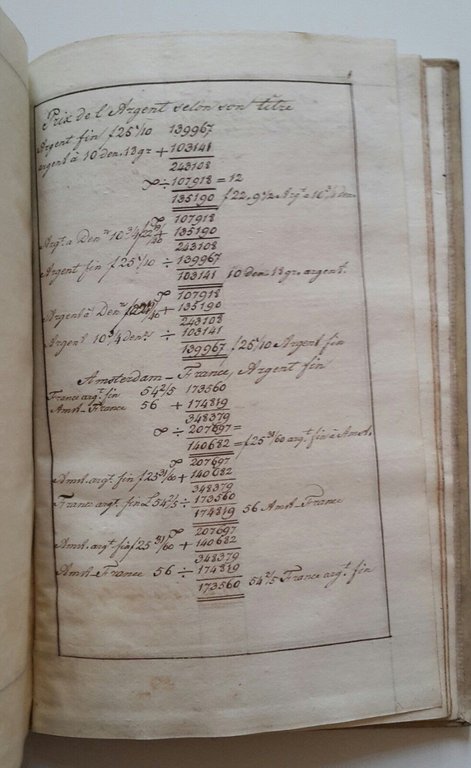 Prix de l'Argent selon son titre
Argent fin f25 1/10 139967
argent à 10 den. 13 gr + 103141
243108
÷ 107918 = 12
135190 f22. 9 1/2 Arg.t a 10 3/4 den.
107918
Arg.t a Den.rs 10 3/4 + 135190
243108
Argent fin f25 1/10 ÷ 139967
103141 10 den. 13 gr. argent.
107918
Argent à Den.rs + 135190
243108
Argent 10 3/4 den.rs ÷ 103141
139967 f25 1/10 Argent fin
Amsterdam - France, Argent fin
France arg.t fin 54 2/5 173560
Amst. - France 56 + 174819
348379
÷ 207697 =
140682 = f25 31/60 arg.t fin à Amst.
207697
Amst. arg.t fin f25 31/60 + 140682
348379
France arg.t fin L 54 2/5 ÷ 173560
174819 56 Amst. France
207697
Amst. arg.t fin f25 31/60 + 140682
348379
Amst. - France 56 ÷ 174819
173560 54 2/5 France arg.t fin